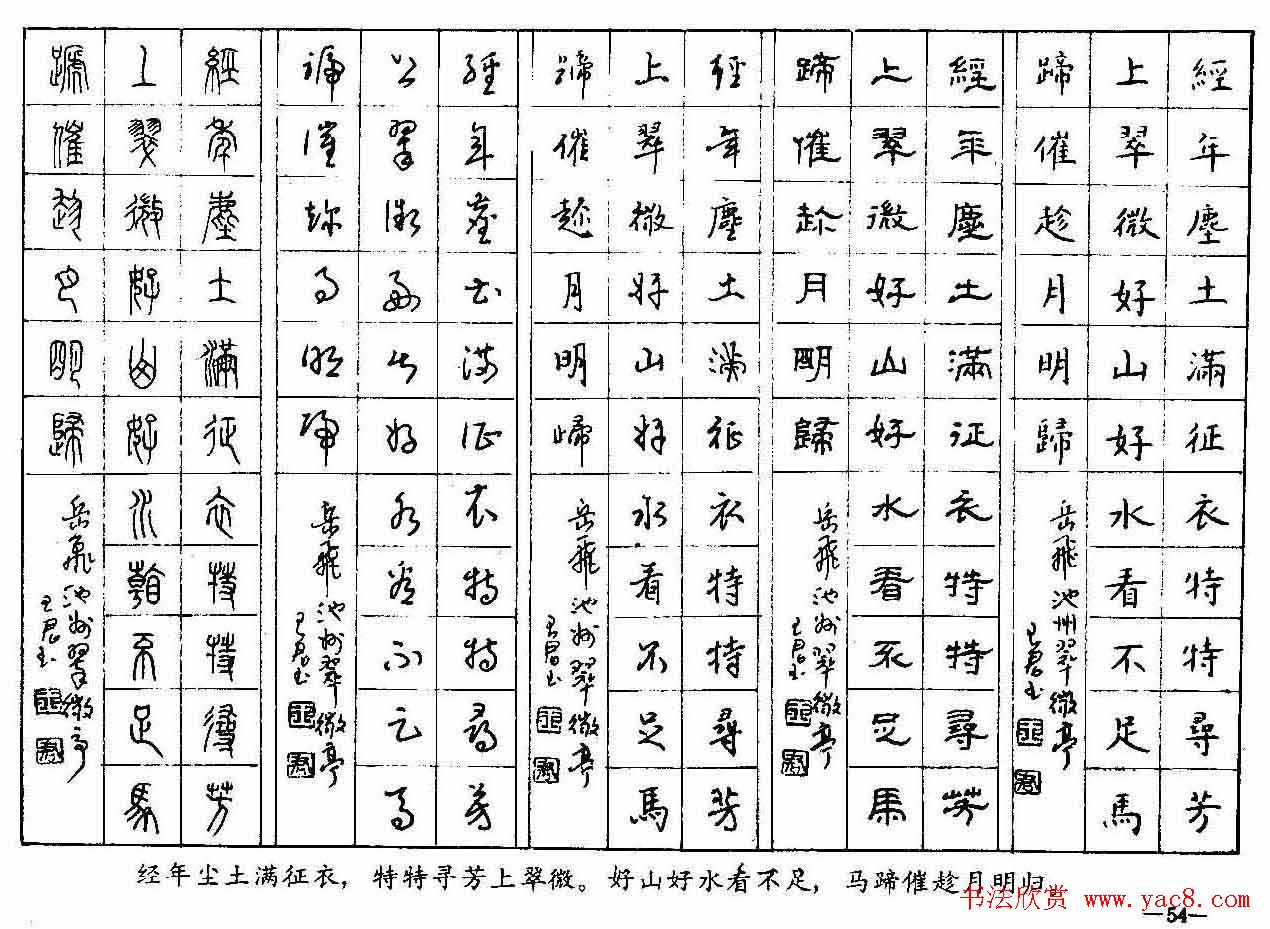 經年塵土滿征衣特特尋芳
上翠微好山好水看不足馬
蹄催趁月明歸
岳飛池州翠微亭
王君玉
經年塵土滿征衣特特尋芳
上翠微好山好水看不足馬
蹄催趁月明歸
岳飛池州翠微亭
王君玉
經年塵土滿征衣特特尋芳
上翠微好山好水看不足馬
蹄催趁月明歸
岳飛池州翠微亭
王君玉
經年塵土滿征衣特特尋芳
上翠微好山好水看不足馬
蹄催趁月明歸
岳飛池州翠微亭
王君玉
經年塵土滿征衣特特尋芳
上翠微好山好水看不足馬
蹄催趁月明歸
岳飛池州翠微亭
王君玉
经年尘土满征衣，特特寻芳上翠微。好山好水看不足，马蹄催趁月明归
书法欣赏 www.yac8.com
—54—